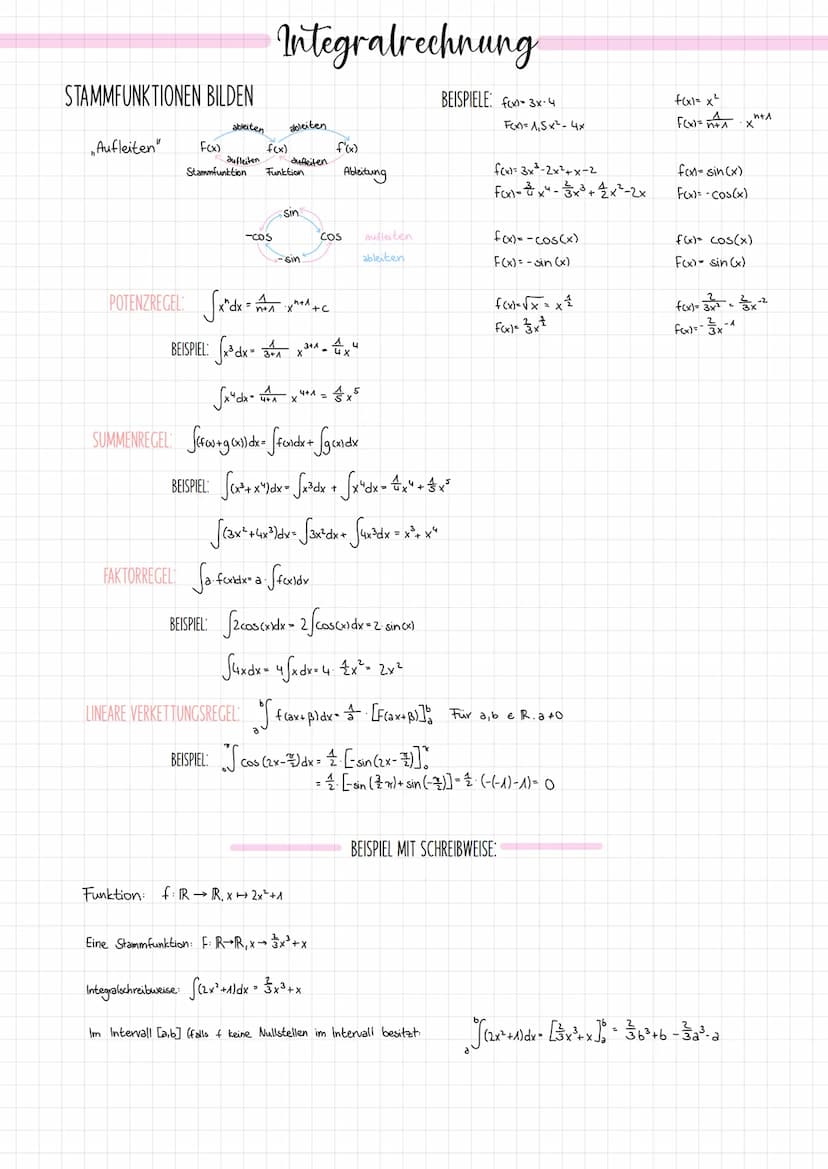 Integralrechnung
STAMMFUNKTIONEN BILDEN
ableiten ableiten
„Aufleiten" F(x) f(x) f'(x)
aufleiten aufleiten
Stammfunktion Funktion Ableitung
sin
-cos cos aufleiten
-sin ableiten
POTENZREGEL: ∫xⁿdx = 1/(n+1) · xⁿ⁺¹ + c
BEISPIEL: ∫x³dx = 1/(3+1) x³⁺¹ = 1/4 x⁴
∫x⁴dx = 1/(4+1) x⁴⁺¹ = 1/5 x⁵
SUMMENREGEL: ∫(f(x)+g(x))dx = ∫f(x)dx + ∫g(x)dx
BEISPIEL: ∫(x³+x⁴)dx = ∫x³dx + ∫x⁴dx = 1/4 x⁴ + 1/5 x⁵
∫(3x²+4x³)dx = ∫3x²dx + ∫4x³dx = x³ + x⁴
FAKTORREGEL: ∫a·f(x)dx = a·∫f(x)dx
BEISPIEL: ∫2cos(x)dx = 2∫cos(x)dx = 2·sin(x)
∫4xdx = 4∫xdx = 4·1/2x² = 2x²
LINEARE VERKETTUNGSREGEL: ₐ∫ᵇ f(ax+β)dx = 1/a · [F(ax+β)]ₐᵇ Für a,b ∈ R. a≠0
BEISPIEL: ₀∫^π cos(2x-π/2)dx = 1/2 · [-sin(2x-π/2)]₀^π
= 1/2 · [-sin(3/2π)+sin(-π/2)] = 1/2 · (-(-1)-1) = 0
BEISPIELE: f(x) = 3x-4
F(x) = 1,5x² - 4x
f(x) = 3x³-2x²+x-2
F(x) = 3/4x⁴ - 2/3x³ + 1/2x² - 2x
f(x) = -cos(x)
F(x) = -sin(x)
f(x) = √x = x^1/2
F(x) = 2/3x^3/2
f(x) = x²
F(x) = 1/(n+1) · xⁿ⁺¹
f(x) = sin(x)
F(x) = -cos(x)
f(x) = cos(x)
F(x) = sin(x)
f(x) = 2/3x² = 2/3x⁻²
F(x) = -2/3x⁻¹
BEISPIEL MIT SCHREIBWEISE:
Funktion: f: R → R, x ↦ 2x²+1
Eine Stammfunktion: F: R→R, x → 2/3x³+x
Integralschreibweise: ∫(2x²+1)dx = 2/3x³+x
Im Intervall [a,b] (falls f keine Nullstellen im Intervall besitzt: ₐ∫ᵇ(2x²+1)dx = [2/3x³+x]ₐᵇ = 2/3b³+b - 2/3a³-a